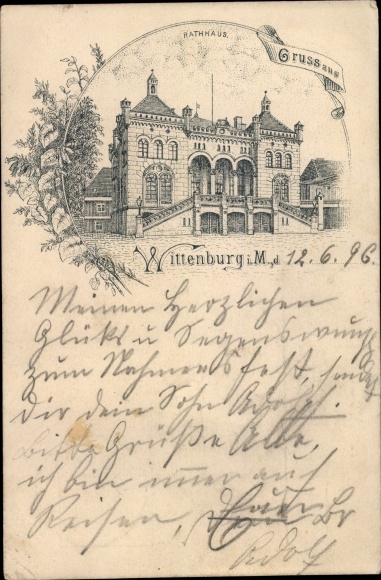 RATHHAUS.
Gruss aus
Wittenburg i. M., d 12. 6. 96.
Meinen Herzlichen
Glüks u Segenswunsch
zum Nahmensfest, sendet
dir dein Sohn Adolf.
Bitte Grüße Alle,
ich bin immer auf
Reisen, Br
Adolf